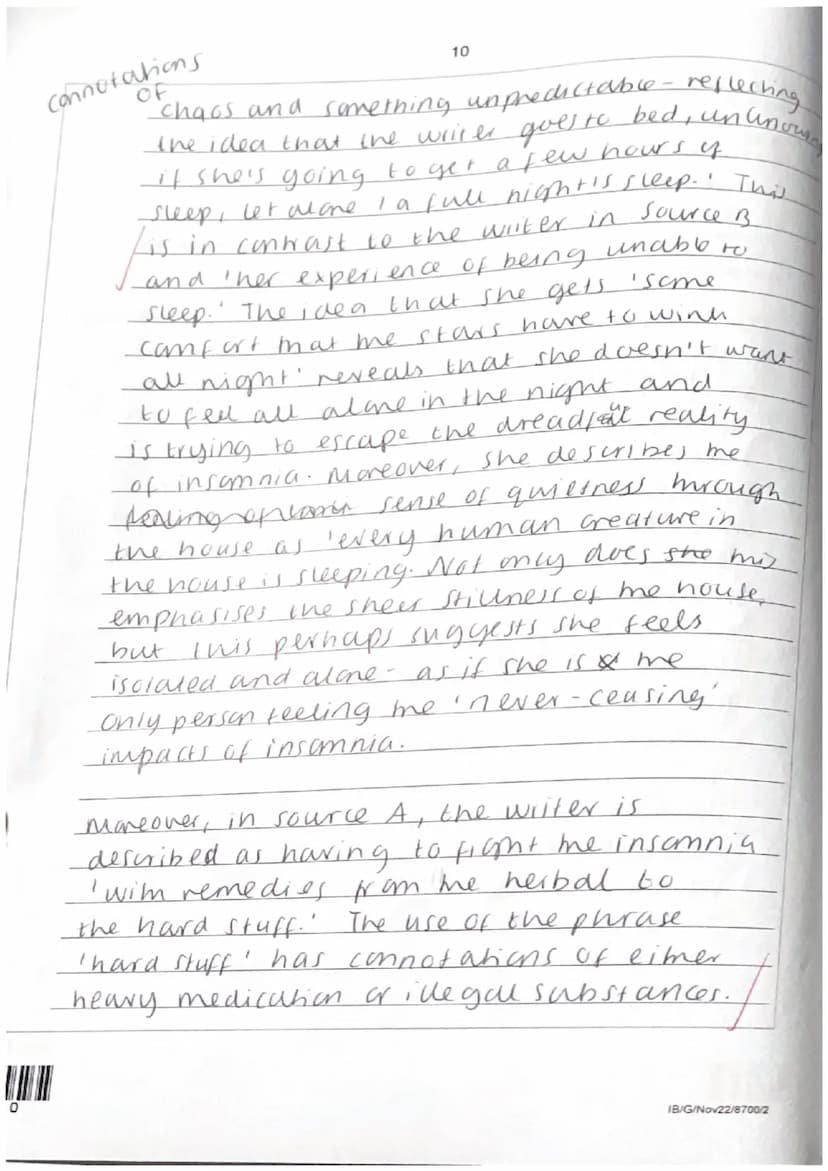 10
connotations
of
chaos and something unpredictable - reflecting
the idea that the writer goes to bed, unknowing
if she's going to get a few hours of
sleep, let alone 'a full night's sleep.' This
is in contrast to the writer in source B
and 'her experience of being unable to
sleep.' The idea that she gets 'some
comfort that the stars have to wink
all night' reveals that she doesn't want
to feel all alone in the night and
is trying to escape the dreadful reality
of insomnia. Moreover, she describes the
sense of quietness through
the house as 'every human creature in
the house is sleeping. Not only does she this
emphasises the sheer stillness of the house,
but this perhaps suggests she feels
isolated and alone - as if she is the
only person feeling the 'never-ceasing'
impacts of insomnia.
Moreover, in source A, the writer is
described as having to fight the insomnia
'with remedies from the herbal to
the hard stuff.' The use of the phrase
'hard stuff' has connotations of either
heavy medication or illegal substances.
0
IB/G/Nov22/8700/2